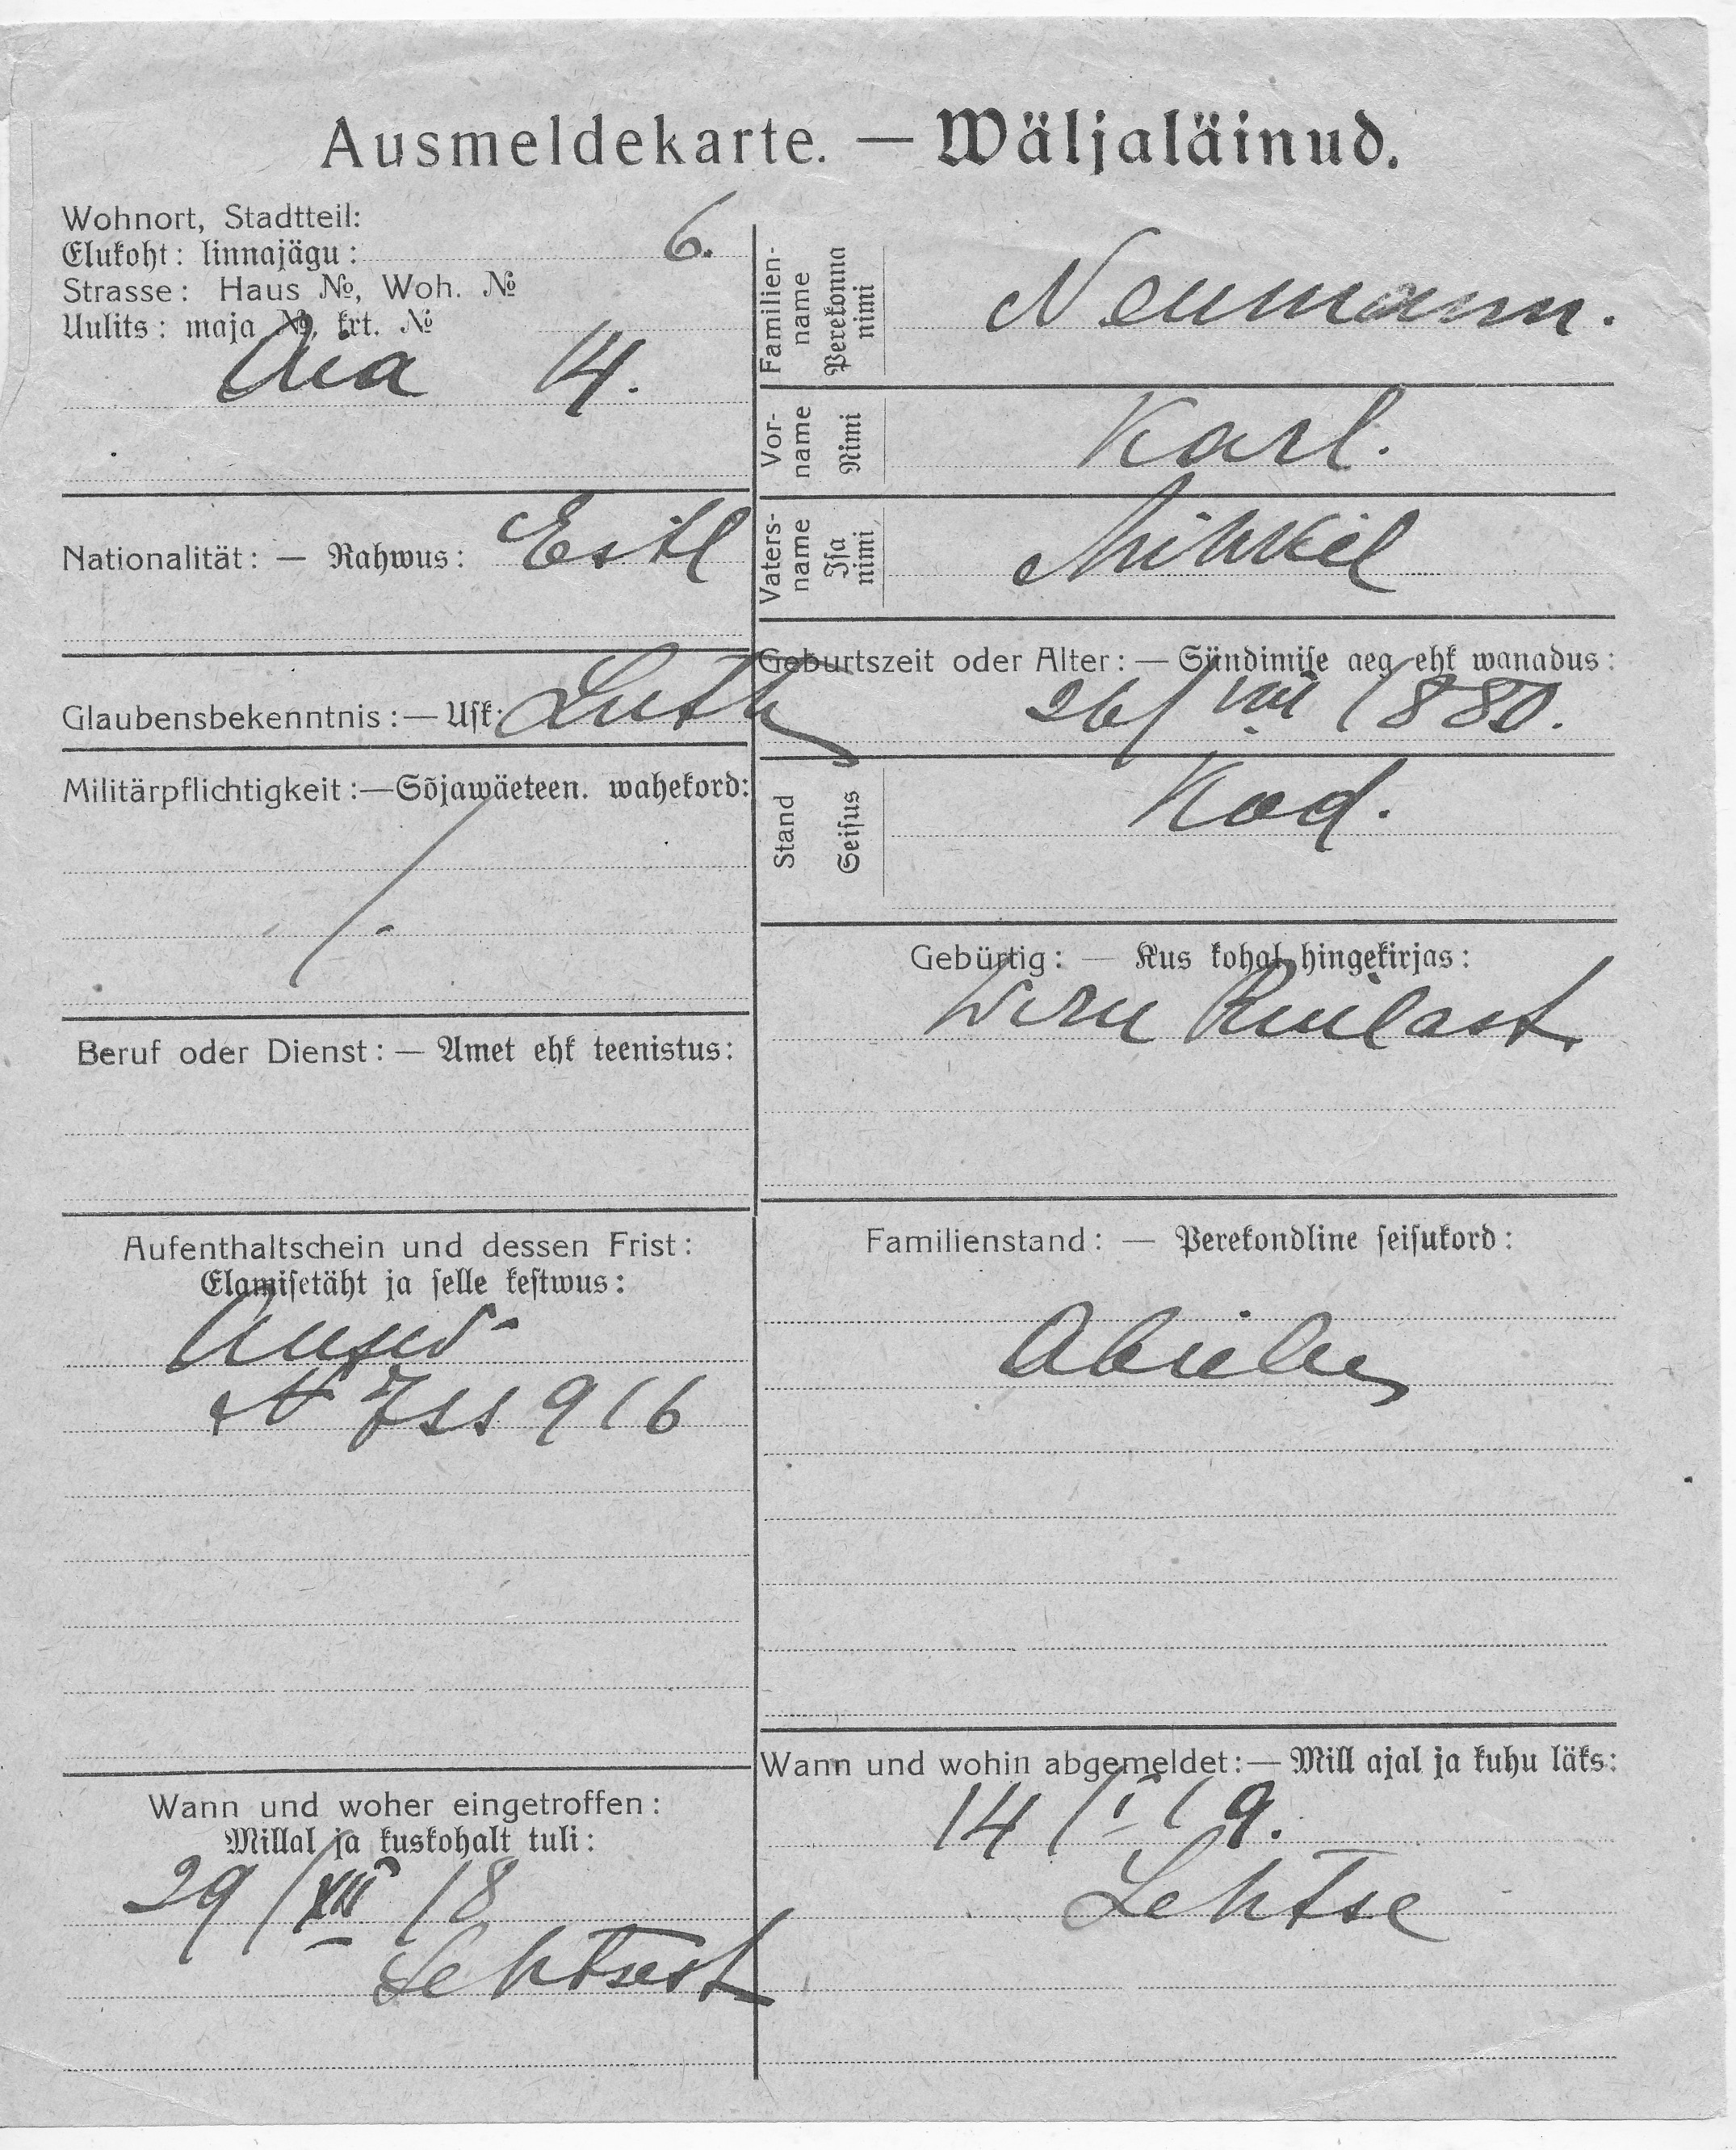 Ausmeldekarte. — Wäljaläinud.
Wohnort, Stadtteil:
Elukoht: linnajägu: 6.
Strasse: Haus №, Woh. №
Uulits: maja №, krt. №
Aia 14.
Familien-name Perekonna nimi Neumann.
Vor-name Nimi Karl.
Vaters-name Isa nimi Mihkel
Nationalität: — Rahwus: Estl
Geburtszeit oder Alter: — Sündimise aeg ehk wanadus:
26/VIII 1880.
Glaubensbekenntnis: — Usk: Luth
Militärpflichtigkeit: — Sõjawäeteen. wahekord:
/.
Stand Seisus Kod.
Gebürtig: — Kus kohal hingekirjas:
Wiru
Beruf oder Dienst: — Amet ehk teenistus:
Aufenthaltschein und dessen Frist:
Elamisetäht ja selle kestwus:
916
Familienstand: — Perekondline seisukord:
Abielus
Wann und woher eingetroffen:
Millal ja kuskohalt tuli:
29/XII 18
Lehtsest
Wann und wohin abgemeldet: — Mill ajal ja kuhu läks:
14/I 19.
Lehtse